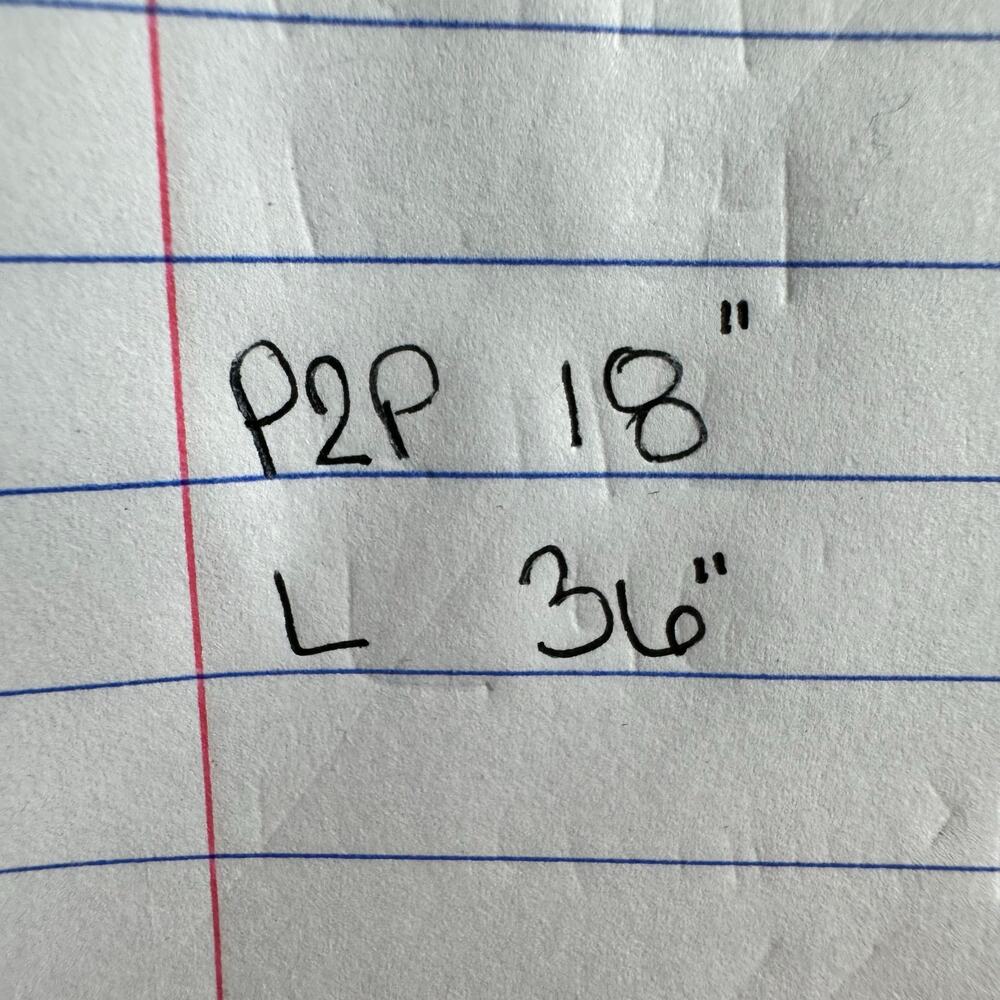 P2P 18"
L 36"